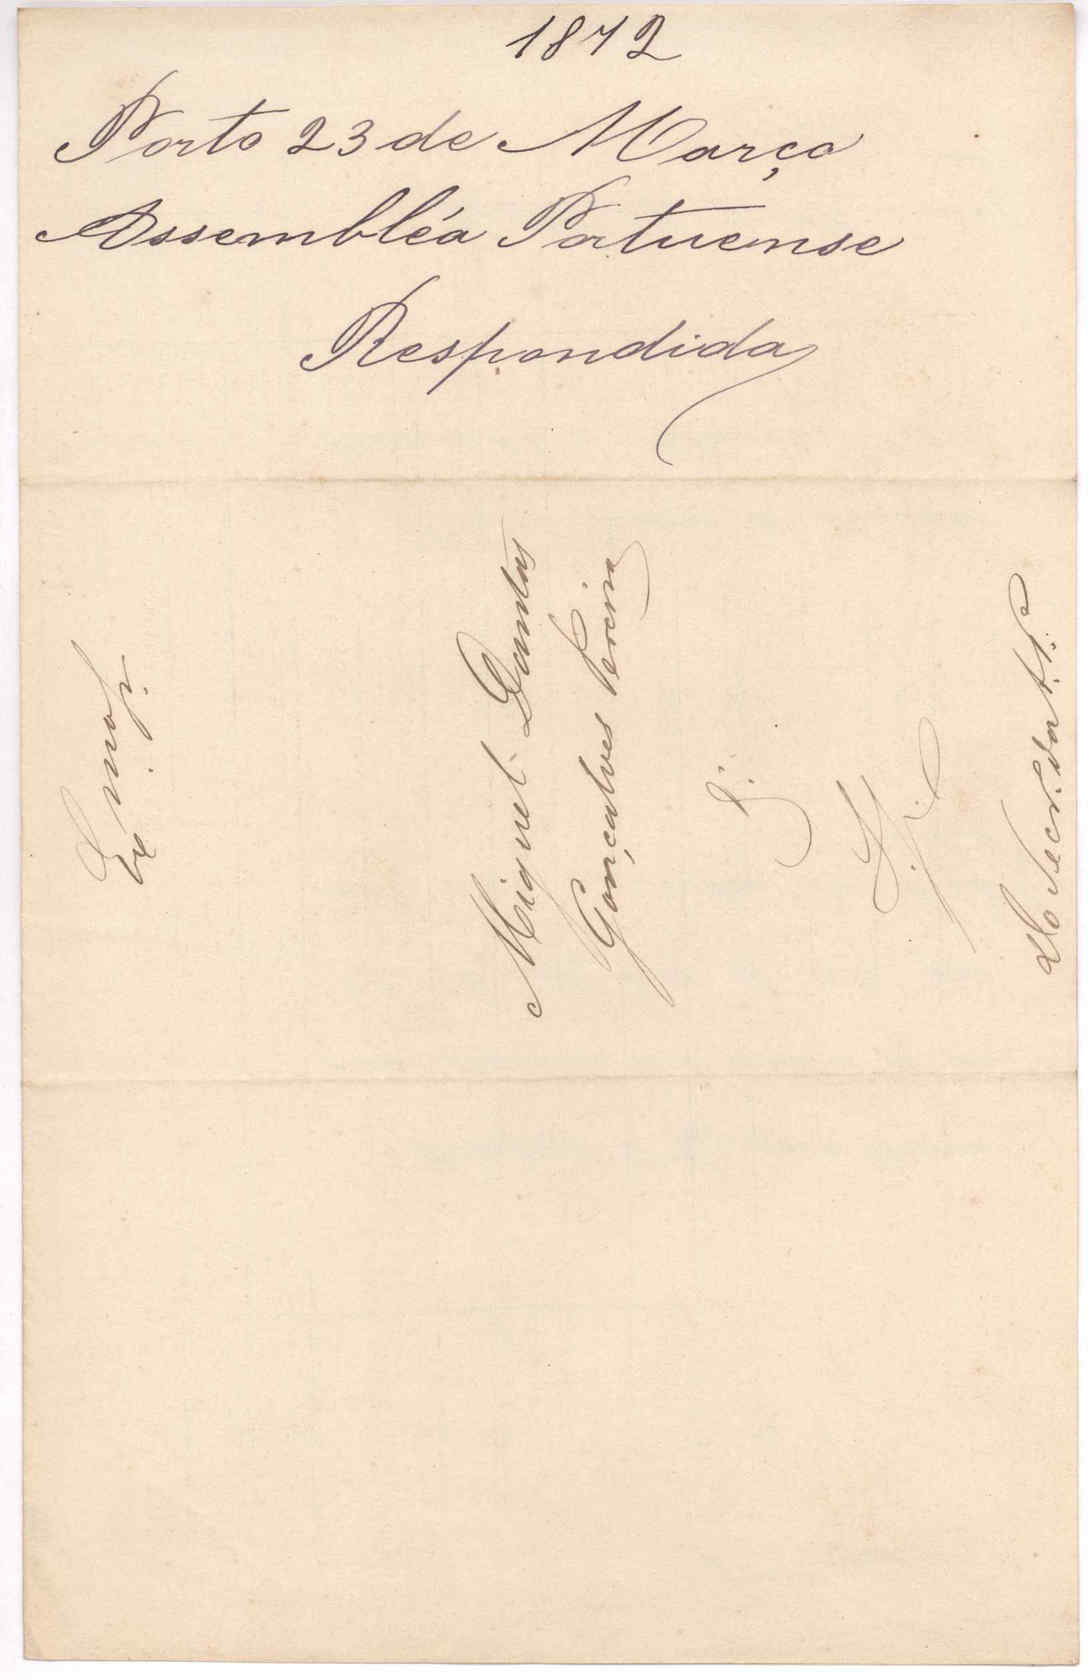 1872
Porto 23 de Março
Assembléa Portuense
Respondida
Miguel Dantas
Gonçalves Pereira
Do Secr. da